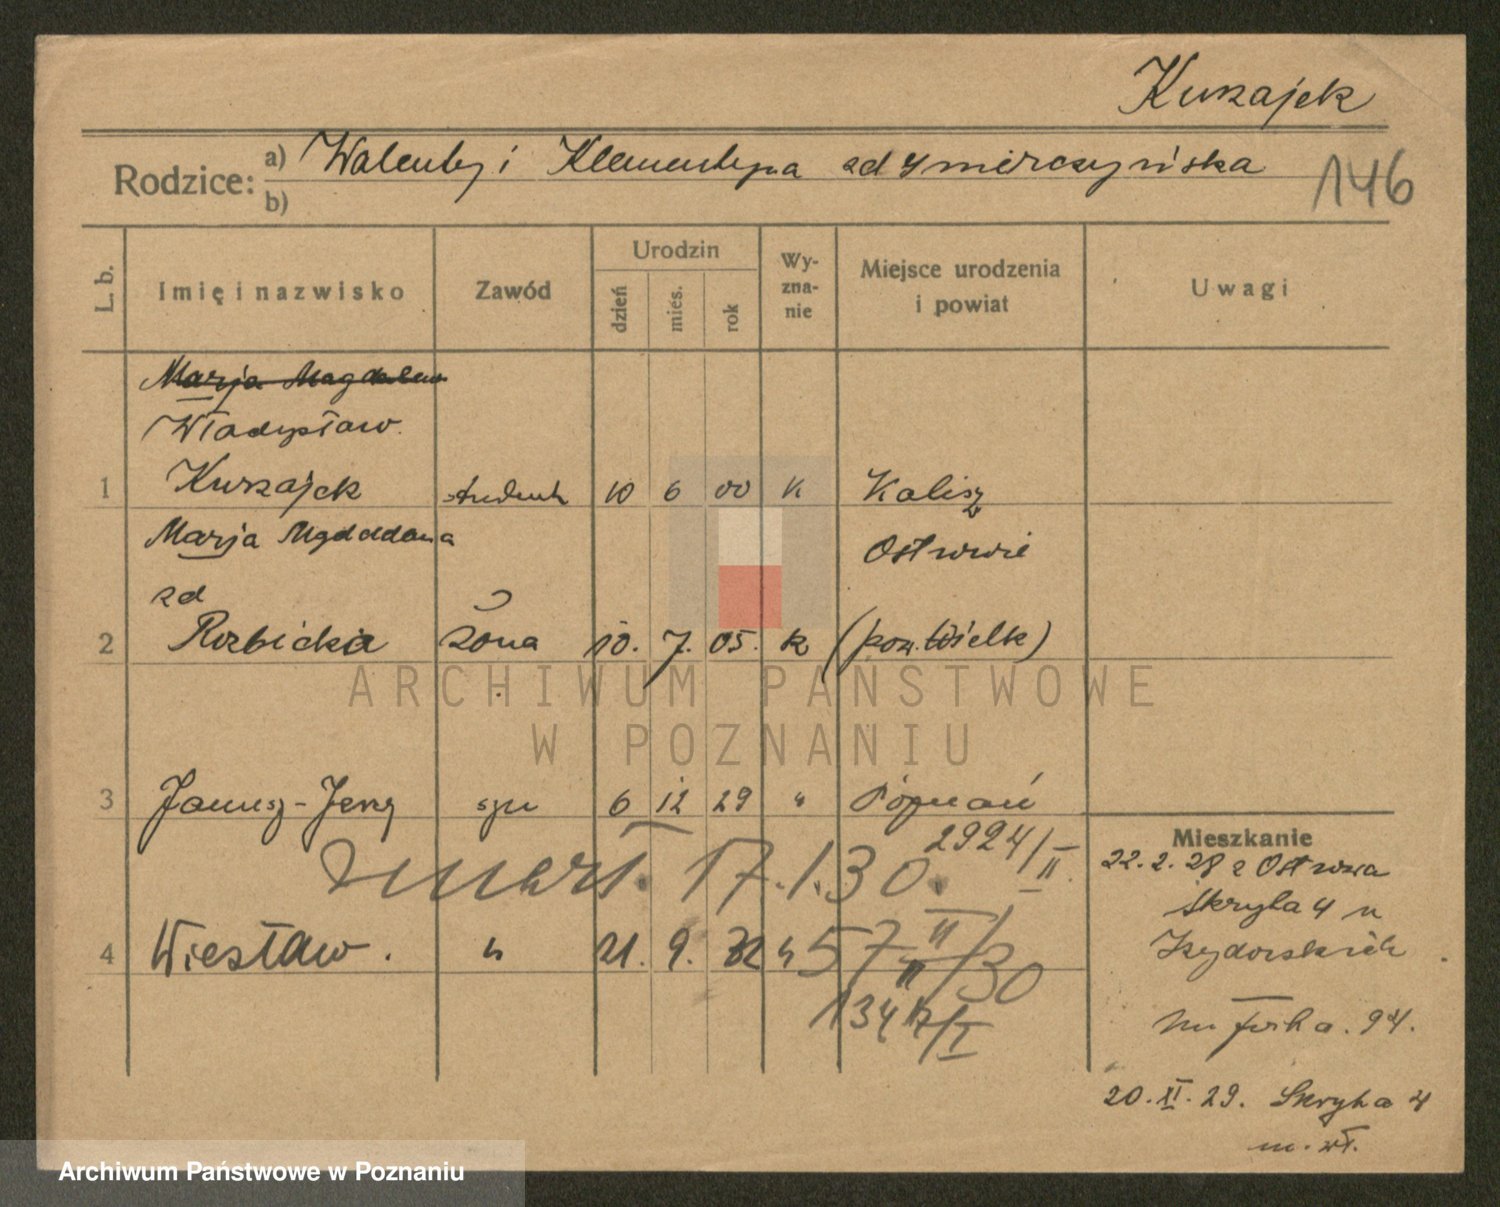 Kurzajek
Rodzice: a) Walenty i Klementyna zd
b)
146
L. b.
Imię i nazwisko
Zawód
Urodzin
dzień
mies.
rok
Wy-
zna-
nie
Miejsce urodzenia
i powiat
Uwagi
Marja Magdalena
Władysław
1 Kurzajek student 10 6 00 K Kalisz
Marja
Ostrowie
zd
2 Rozbicka żona 10. 7. 05. k (pow. Wielk)
ARCHIWUM PAŃSTWOWE
W POZNANIU
3 Janusz-Jerzy syn 6 12 29 " Poznań
zmarł. 17.1.30. 2924/II.
4 Wiesław. " 21. 9. 32 "
57 II/30
Mieszkanie
22.2.28 z Ostrowa
Skryta 4 u
94.
20.XI.29. Skryta 4
m. wł.
Archiwum Państwowe w Poznaniu